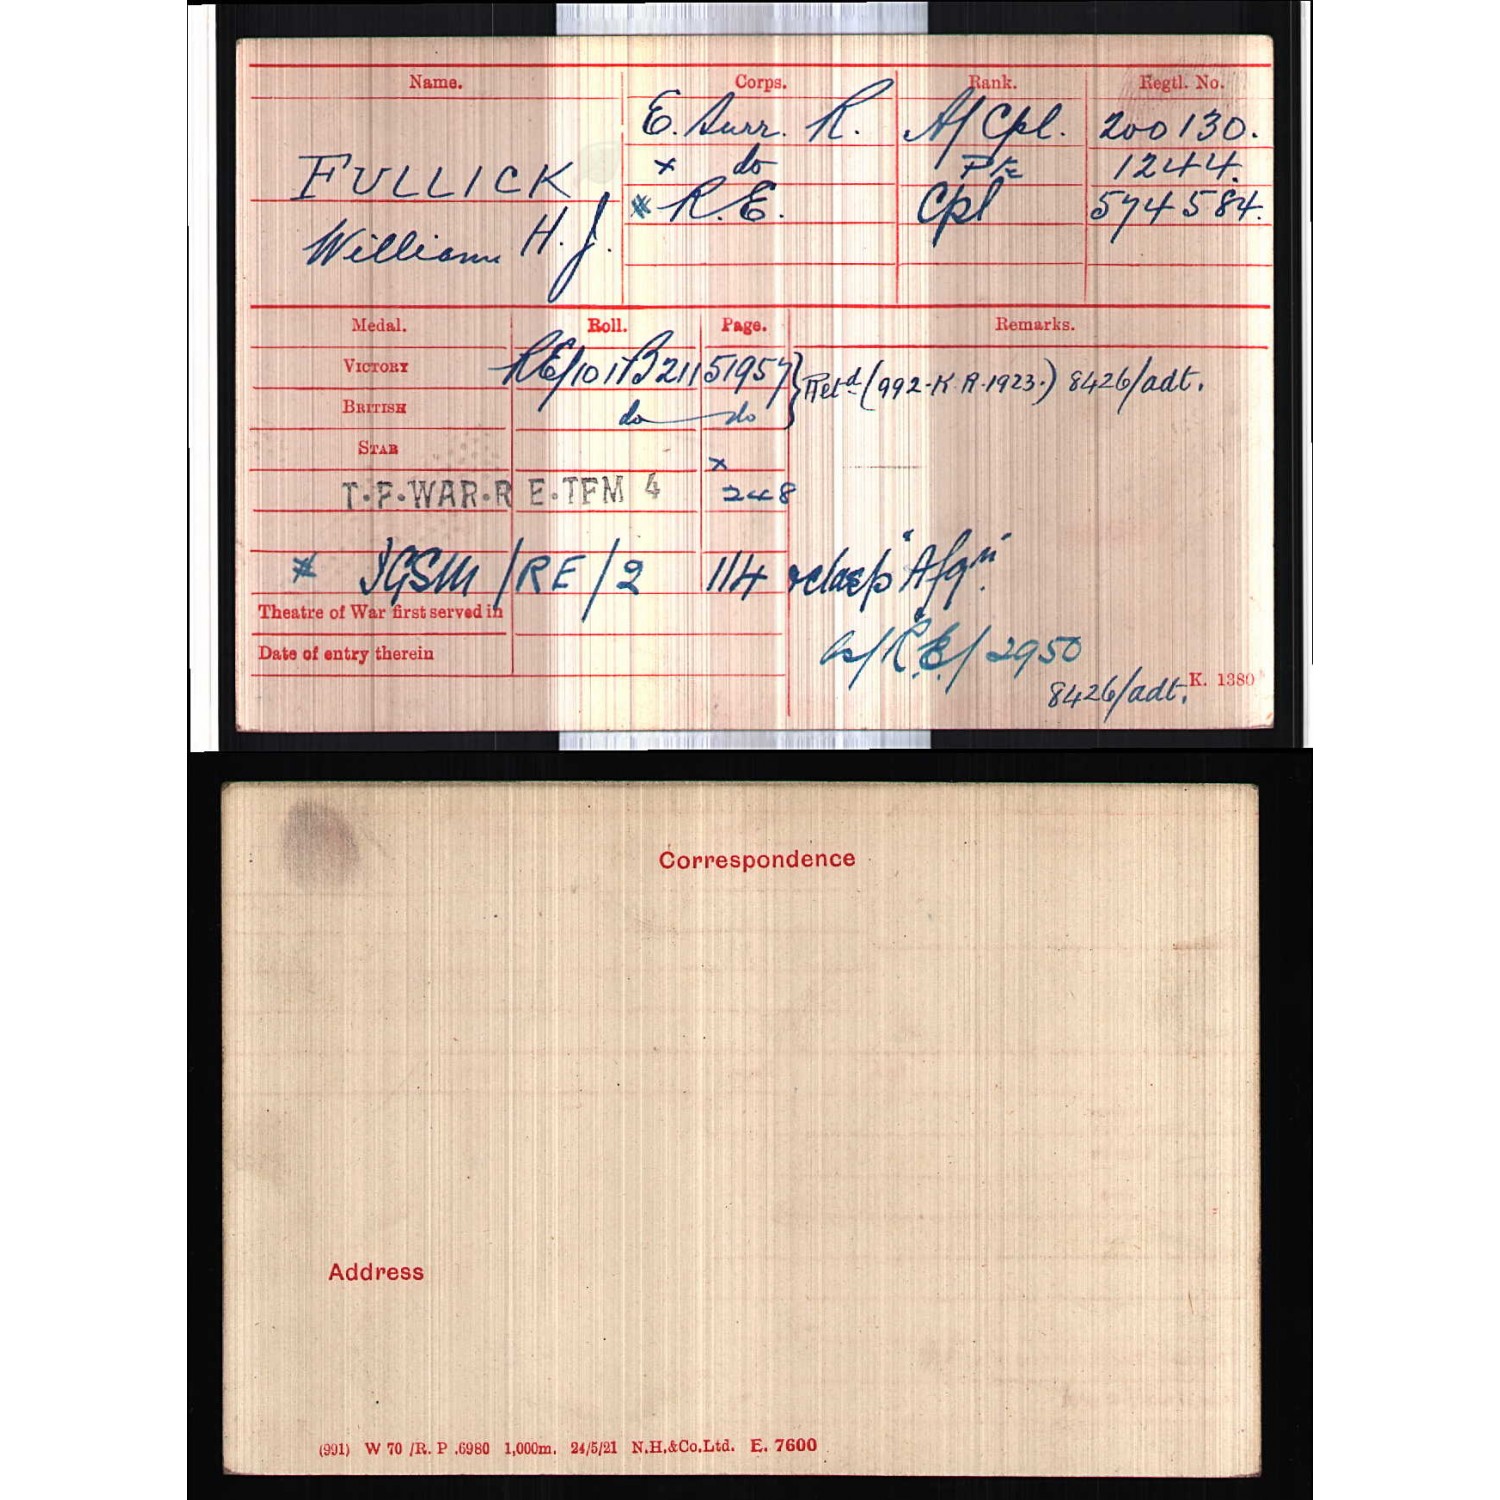 Name. Corps. Rank. Regtl. No.
E. Surr. R. A/Cpl. 200130.
FULLICK x do Pte 1244.
William H. J. * R.E. Cpl 574584.
Medal. Roll. Page. Remarks.
VICTORY RE/101B211 51957 } Ret^d (992-K.R.1923.) 8426/adt.
BRITISH do do
STAR
x
T·F·WAR·R E·TFM 4 248
* IGSM /RE/2 114 clasp "Afgn".
Theatre of War first served in
Date of entry therein
/R.E/2950
8426/adt.
K. 1380
Correspondence
Address
(991) W 70 /R. P .6980 1,000m. 24/5/21 N.H,&Co,Ltd. E. 7600